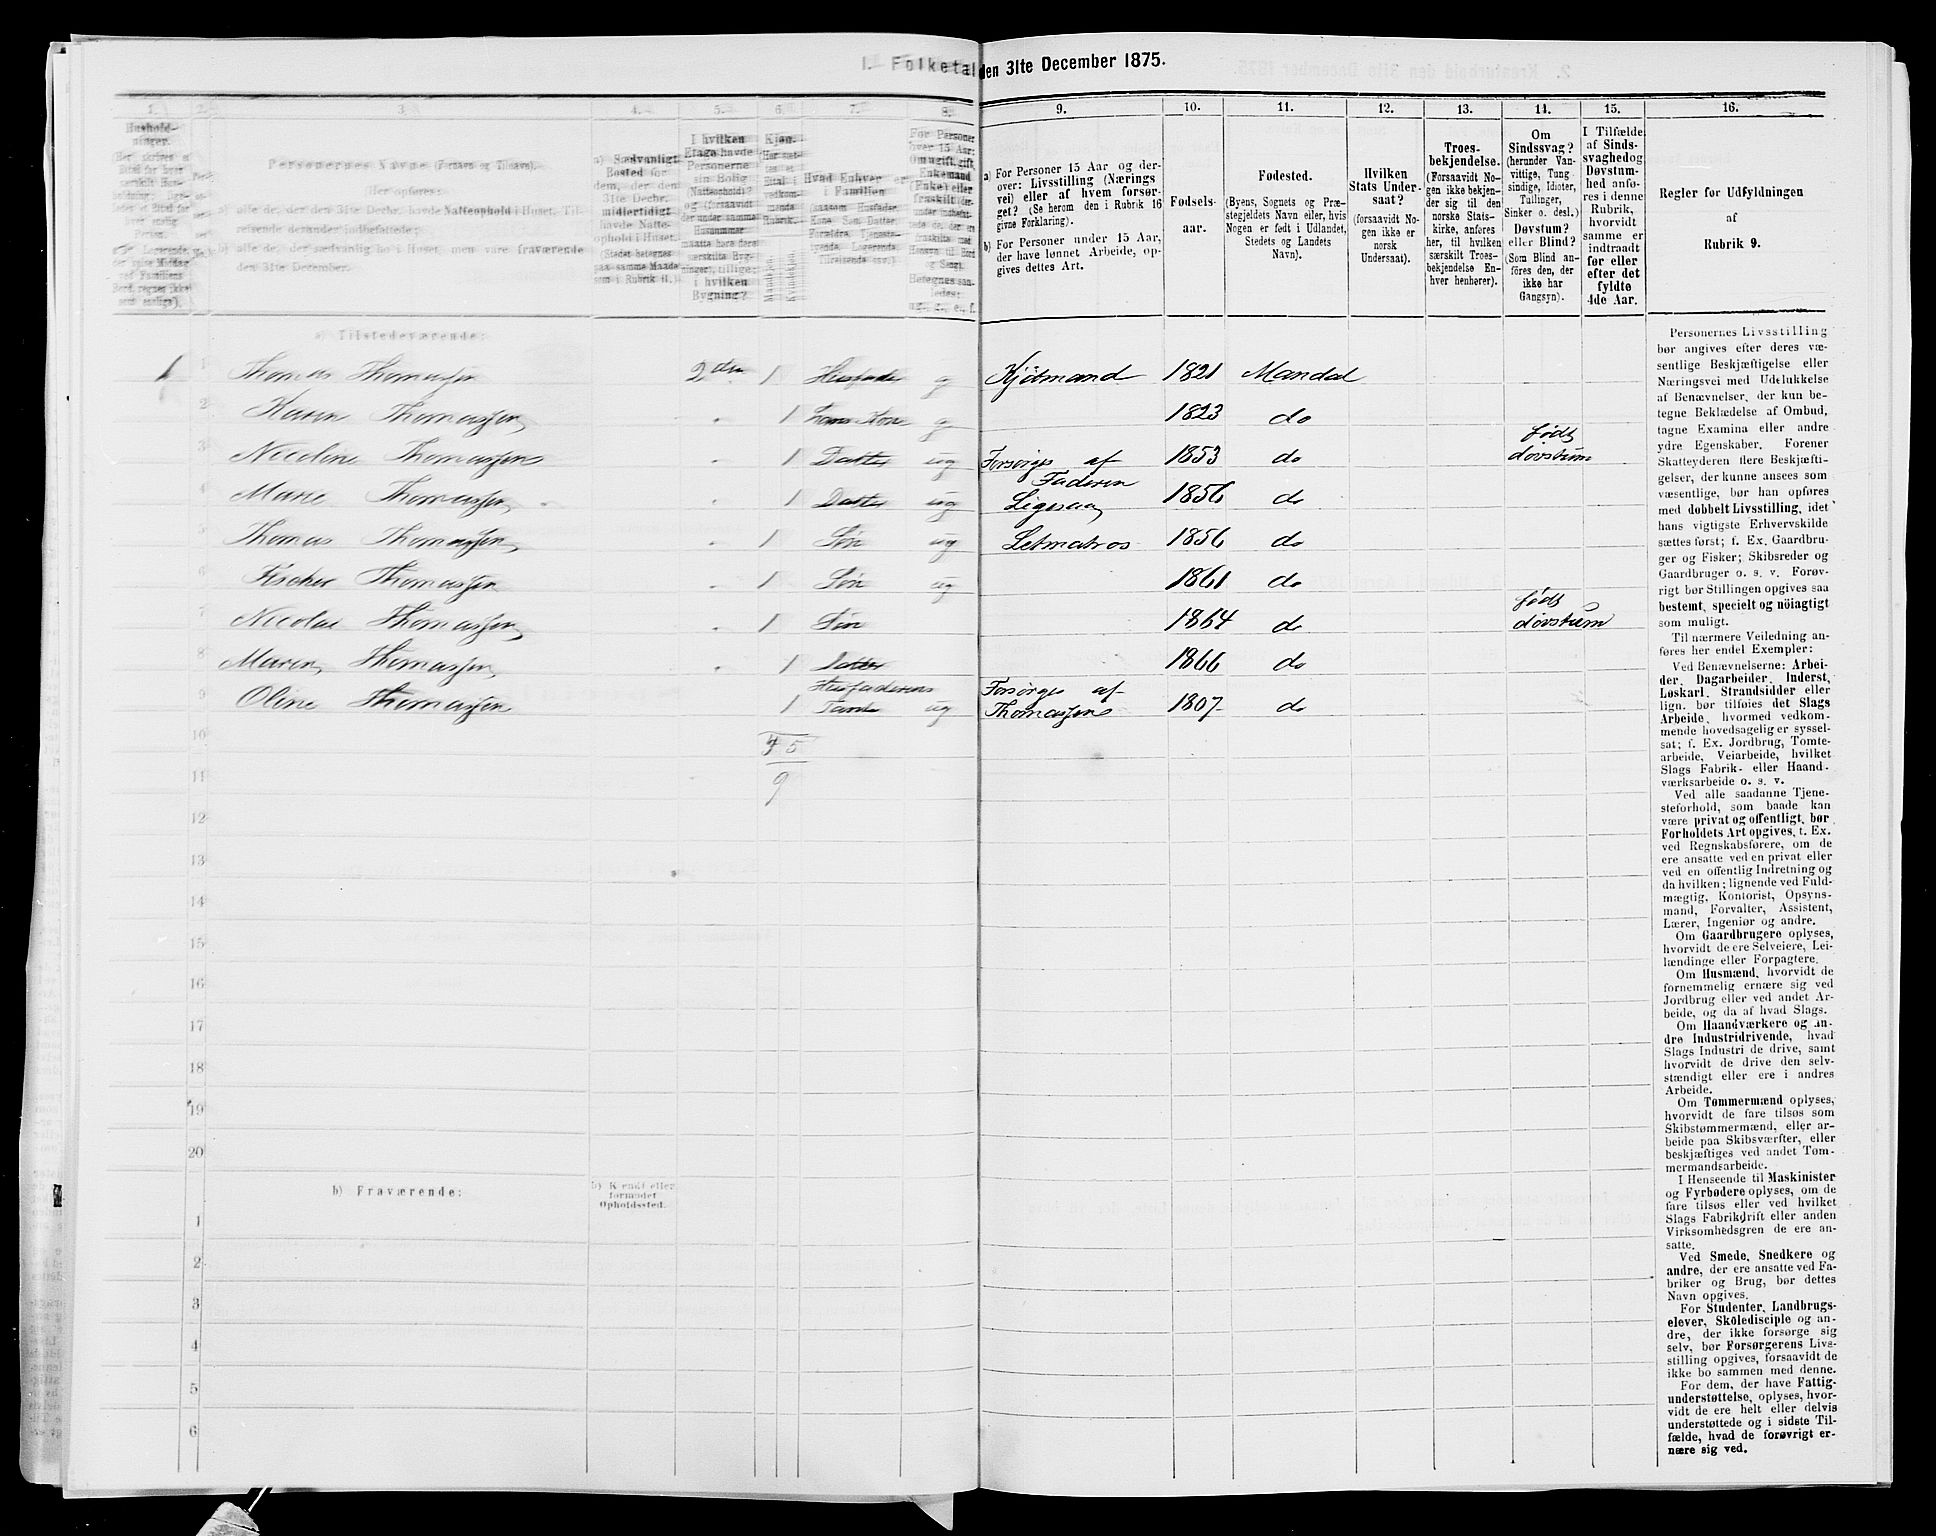 1. Folketal den 31te December 1875.
1. 2. 3. 4. 5. 6. 7. 8. 9. 10. 11. 12. 13. 14. 15. 16.
Hushold-
ninger.
Personernes Navne (Fornavn og Tilnavn).
(Her opføres:
a) alle de, der den 31te Decbr. havde Natteophold i Huset, Til-
reisende derunder indbefattede;
b) alle de, der sædvanlig bo i Huset, men vare fraværende
den 31te December.
a) Sædvanligt
Bosted for
dem, der den
31te Decbr.
midlertidigt
havde Natte-
ophold i Huset.
(Stedet betegnes
paa samme Maade
som i Rubrik 11.)
I hvilken
Etage havde
Personerne
sin Bolig
(Natteophold)?
og (forsaavidt
der under samme
Husnummer
maatte høre flere
særskilte Byg-
ninger), tillige:
i hvilken
Bygning?
Kjøn.
(Her sæt-
tes et
Ettal i
vedkom-
mende
Rubrik.)
Mandkjøn.
Kvindekjøn.
Hvad Enhver er
i Familien
(saasom Husfader,
Kone, Søn, Datter,
Forældre, Tjeneste-
tyende, Logerende,
Tilreisende osv.)
For Personer
over 15 Aar:
Om ugift, gift,
Enkemand
(Enke) eller
fraskilt
Betegnes saa-
ledes:
ug., g., e., f.
a) For Personer 15 Aar og der-
over: Livsstilling (Nærings-
vei) eller af hvem forsør-
get? (Se herom den i Rubrik 16
givne Forklaring).
b) For Personer under 15 Aar,
der have lønnet Arbeide, op-
gives dettes Art.
Fødsels-
aar.
Fødested.
(Byens, Sognets og Præ-
stegjeldets Navn eller, hvis
Nogen er født i Udlandet,
Stedets og Landets
Navn).
Hvilken
Stats Under-
saat?
(forsaavidt No-
gen ikke er
norsk
Undersaat).
Troes-
bekjendelse.
(Forsaavidt No-
gen ikke bekjen-
der sig til den
norske Stats-
kirke, anføres
her, til hvilken
særskilt Troes-
bekjendelse En-
hver henhører).
Om
Sindssvag?
(herunder Van-
vittige, Tung-
sindige, Idioter,
Tullinger,
Sinker o. desl.)
Døvstum?
eller Blind?
(Som Blind an-
føres den, der
ikke har
Gangsyn).
I Tilfælde
af Sinds-
svaghed og
Døvstum-
hed anfø-
res i denne
Rubrik,
hvorvidt
samme er
indtraadt
før eller
efter det
fyldte
4de Aar.
Regler for Udfyldningen
af
Rubrik 9.
a) Tilstedeværende:
1 1 Thomas Thomassen 2den 1 Husfader g Kjøbmand 1821 Mandal
2 Karen Thomassen " 1 Kone g 1823 do
3 Nicoline Thomassen " 1 Datter ug Forsørges af Faderen 1853 do født døvstum
4 Marie Thomassen " 1 Datter ug Ligesaa 1856 do
5 Thomas Thomassen " 1 Søn ug Letmatros 1856 do
6 Fischer Thomassen " 1 Søn ug 1861 do
7 Nicolai Thomassen " 1 Søn 1864 do født døvstum
8 Maren Thomassen " 1 Datter 1866 do
9 Oline Thomassen 1 Husfaderens Tante ug Forsørges af Thomassen 1807 do
10 4 5
11 9
12
13
14
15
16
17
18
19
20
b) Fraværende:
b) Kjendt eller
formodet
Opholdssted.
1
2
3
4
5
6
Personernes Livsstilling
bør angives efter deres væ-
sentlige Beskjæftigelse eller
Næringsvei med Udelukkelse
af Benævnelser, der kun be-
tegne Beklædelse af Ombud,
tagne Examina eller andre
ydre Egenskaber. Forener
Skatteyderen flere Beskjæfti-
gelser, der kunne ansees som
væsentlige, bør han opføres
med dobbelt Livsstilling, idet
hans vigtigste Erhvervskilde
sættes først; f. Ex. Gaardbru-
ger og Fisker; Skibsreder og
Gaardbruger o. s. v. Forøv-
rigt bør Stillingen opgives saa
bestemt, specielt og nöiagtigt
som muligt.
Til nærmere Veiledning an-
føres her endel Exempler:
Ved Benævnelserne: Arbei-
der, Dagarbeider, Inderst,
Løskarl, Strandsidder eller
lign. bør tilføies det Slags
Arbeide, hvormed vedkom-
mende hovedsagelig er syssel-
sat; f. Ex. Jordbrug, Tomte-
arbeide, Veiarbeide, hvilket
Slags Fabrik- eller Haand-
værksarbeide o. s. v.
Ved alle saadanne Tjene-
steforhold, som baade kan
være privat og offentligt, bør
Forholdets Art opgives, t. Ex.
ved Regnskabsførere, om de
ere ansatte ved en privat eller
ved en offentlig Indretning og
da hvilken; lignende ved Fuld-
mægtig, Kontorist, Opsyns-
mand, Forvalter, Assistent,
Lærer, Ingeniør og andre.
Om Gaardbrugere oplyses,
hvorvidt de ere Selveiere, Lei-
lændinge eller Forpagtere.
Om Husmænd, hvorvidt de
fornemmelig ernære sig ved
Jordbrug eller ved andet Ar-
beide, og da af hvad Slags.
Om Haandværkere og an-
dre Industridrivende, hvad
Slags Industri de drive, samt
hvorvidt de drive den selv-
stændigt eller ere i andres
Arbeide.
Om Tømmermænd oplyses,
hvorvidt de fare tilsøs som
Skibstømmermænd, eller ar-
beide paa Skibsværfter, eller
beskjæftiges ved andet Tøm-
mermandsarbeide.
I Henseende til Maskinister
og Fyrbødere oplyses, om de
fare tilsøs eller ved hvilket
Slags Fabrikdrift eller anden
Virksomhedsgren de ere an-
satte.
Ved Smede, Snedkere og
andre, der ere ansatte ved Fa-
briker og Brug, bør dettes
Navn opgives.
For Studenter, Landbrugs-
elever, Skoledisciple og an-
dre, der ikke forsørge sig
selv, bør Forsørgerens Livs-
stilling opgives, forsaavidt de
ikke bo sammen med denne.
For dem, der have Fattig-
understøttelse, oplyses, hvor-
vidt de ere helt eller delvis
understøttede og i sidste Til-
fælde, hvad de forøvrigt er-
nære sig ved.